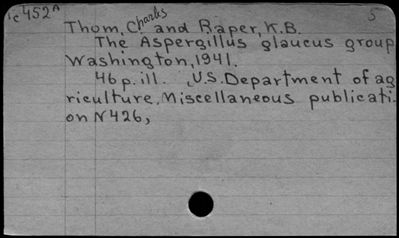 1c452A 5
Thom, Ch. Charles and Raper, K.B.
The Aspergillus glaucus group
Washington, 1941.
46 p. ill. U.S. Department of ag
riculture, Miscellaneous publicati-
on N 426,